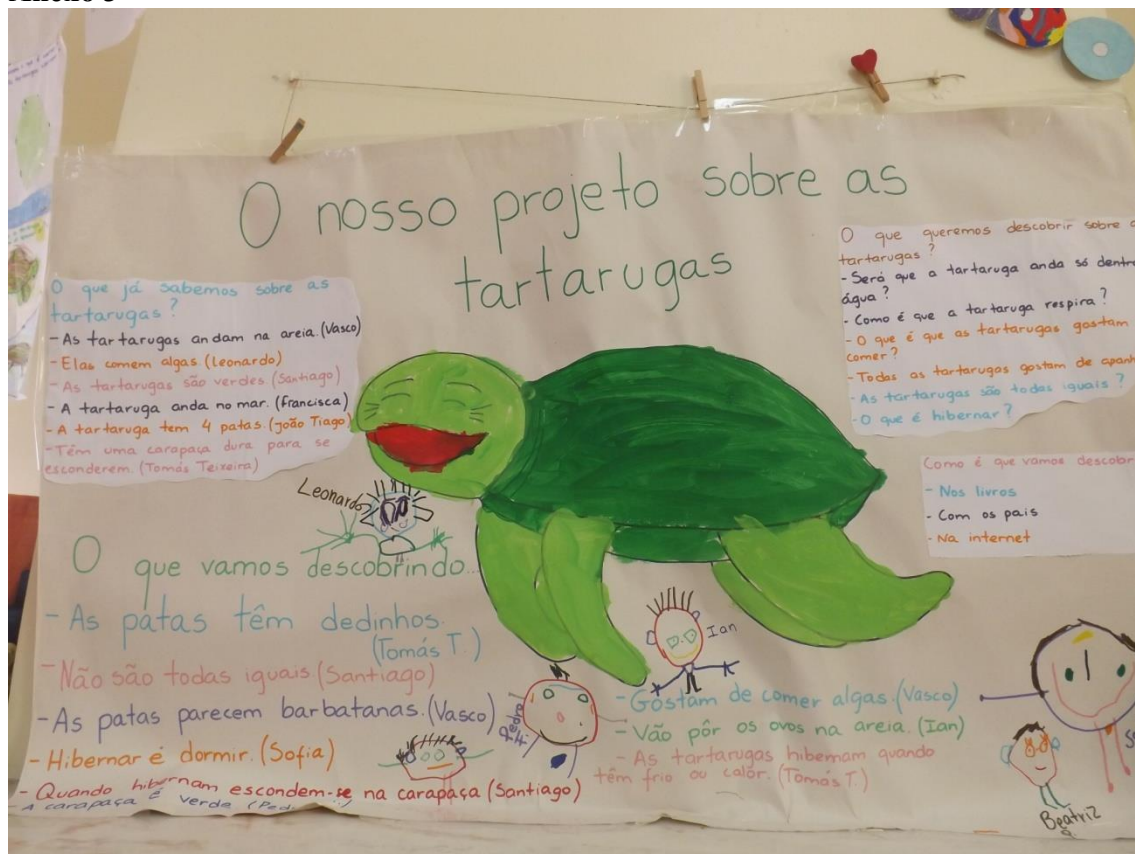 O nosso projeto sobre as
tartarugas
O que já sabemos sobre as
tartarugas?
- As tartarugas andam na areia. (Vasco)
- Elas comem algas. (Leonardo)
- As tartarugas são verdes. (Santiago)
- A tartaruga anda no mar. (Francisca)
- A tartaruga tem 4 patas. (João Tiago)
- Têm uma carapaça dura para se
esconderem. (Tomás Teixeira)
O que queremos descobrir sobre
tartarugas?
- Será que a tartaruga anda só dentr
água?
- Como é que a tartaruga respira?
- O que é que as tartarugas gostam
comer?
- Todas as tartarugas gostam de apanh
- As tartarugas são todas iguais?
- O que é hibernar?
Como é que vamos descobrir
- Nos livros
- Com os pais
- Na internet
Leonardo
O que vamos descobrindo...
- As patas têm dedinhos.
(Tomás T.)
- Não são todas iguais. (Santiago)
- As patas parecem barbatanas. (Vasco)
- Hibernar é dormir. (Sofia)
- Quando hibernam escondem-se na carapaça (Santiago)
- A carapaça é verde
Pedro H.
Ian
- Gostam de comer algas. (Vasco)
- Vão pôr os ovos na areia. (Ian)
- As tartarugas hibernam quando
têm frio ou calor. (Tomás T.)
Beatriz